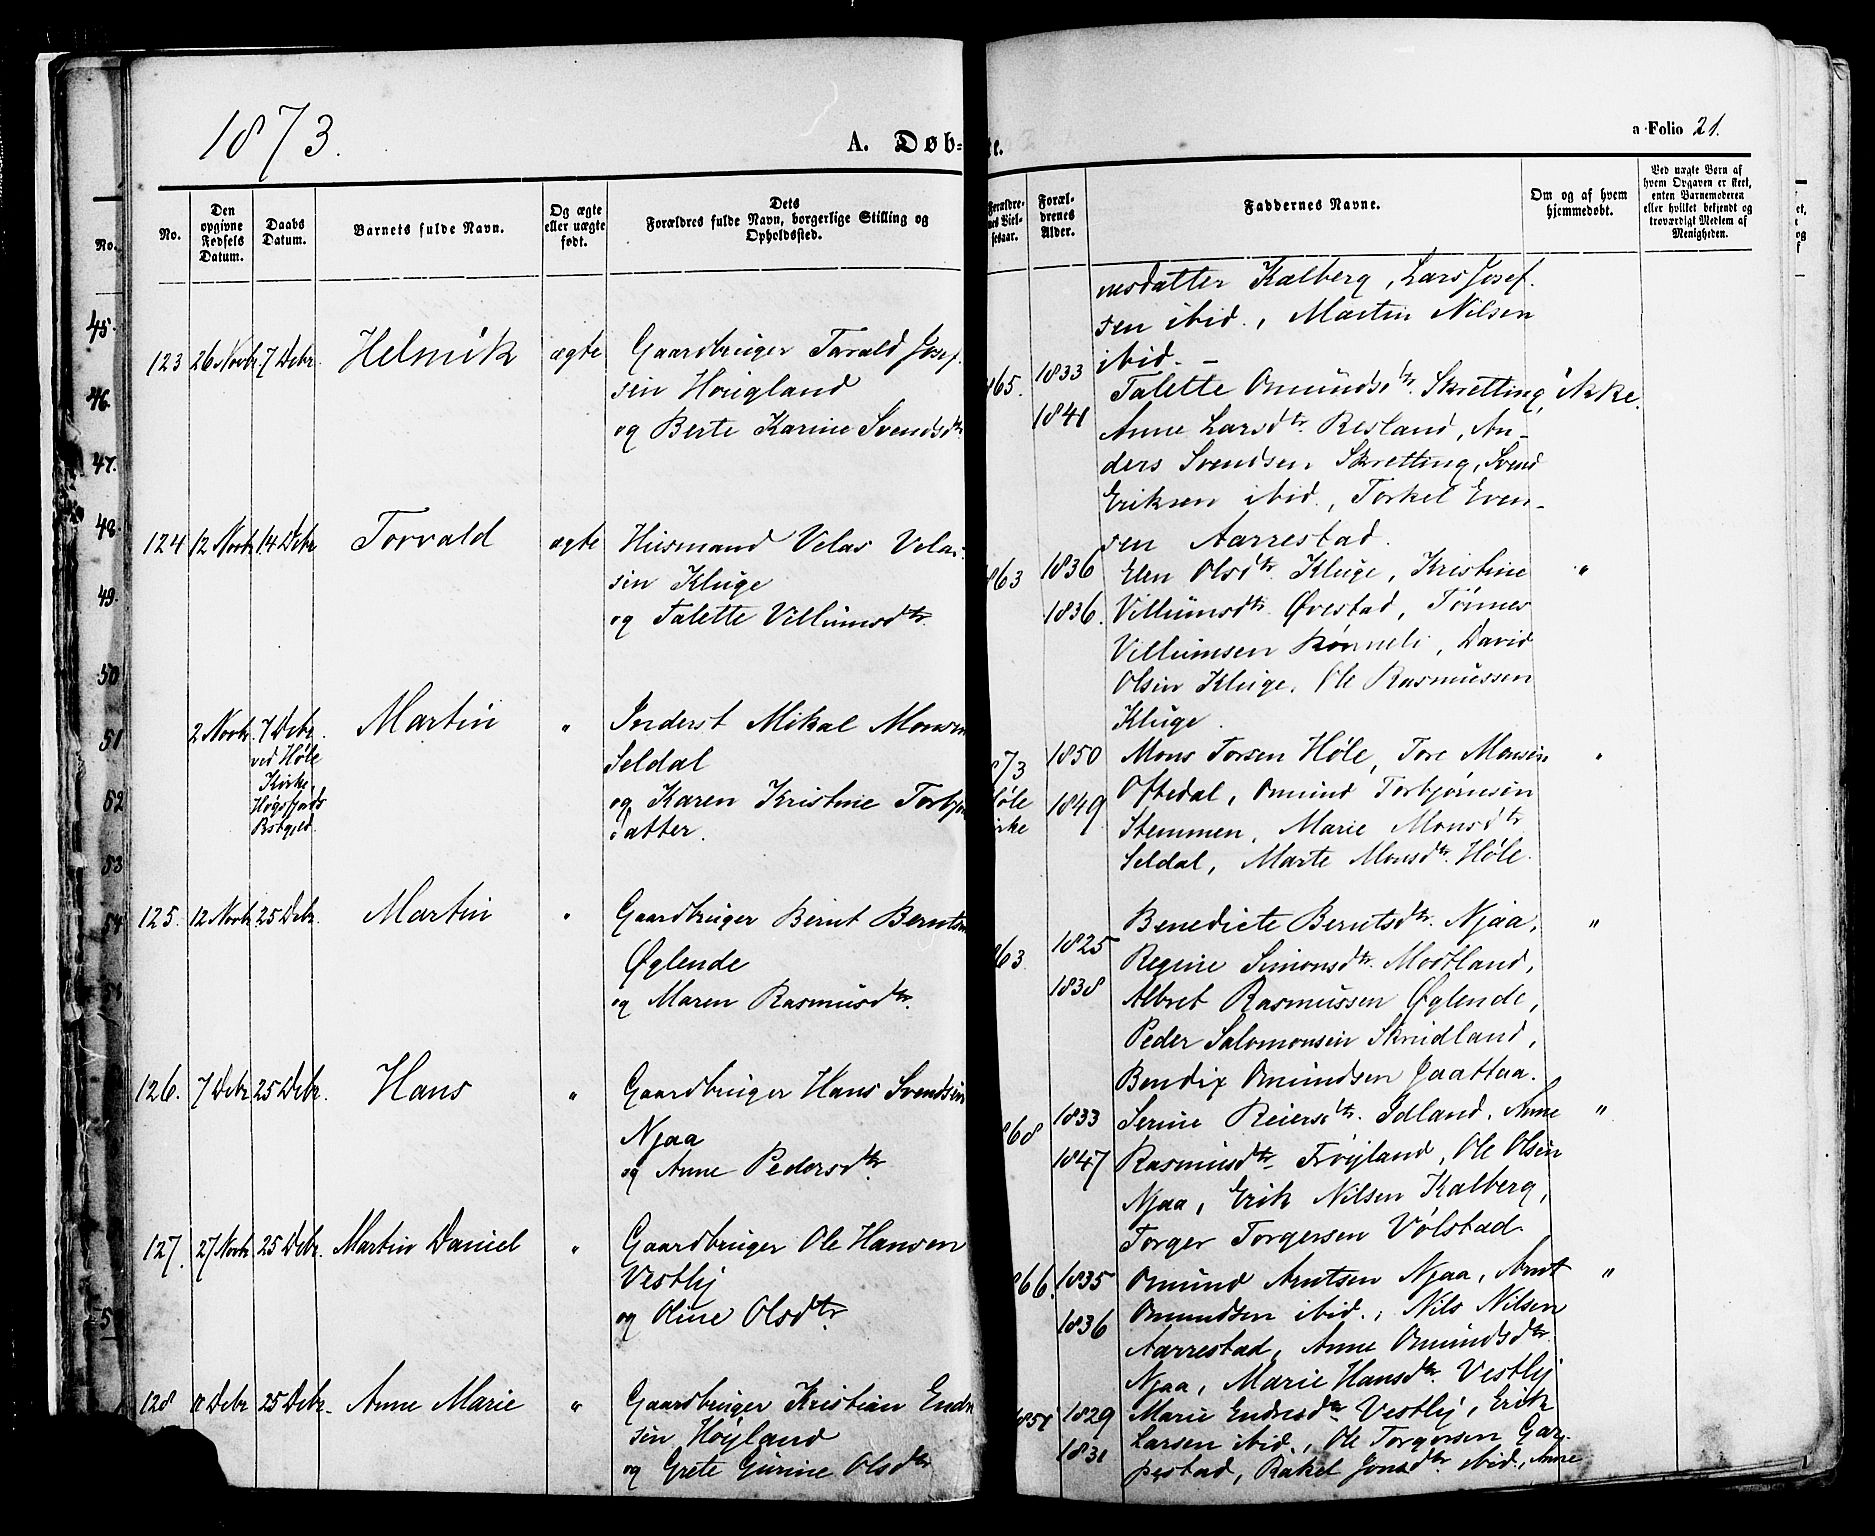 1873.
A. Døb=
te.
a Folio 21.
No.
Den opgivne Fødsels Datum.
Daabs Datum.
Barnets fulde Navn.
Og ægte eller uægte født.
Dets Forældres fulde Navn, borgerlige Stilling og Opholdssted.
Forældrenes Alder.
Faddernes Navne.
Om og af hvem hjemmedøbt.
Ved uægte Børn af hvem Opgaven er skeet, enten Barnemoderen eller hvilket bekjendt og troværdigt Medlem af Menigheden.
nesdatter Kalberg, Lars Josef-
sen ibid., Martin Nilsen
ibid. –
123 26 Novbr. 7 Debr. Helmik ægte
Gaardbruger Tarald Josef-
sen Hougland
og Berte Karine Svendsdtr.
865. 1833
1841
Talette Omundsdtr. Skretting, ikke.
Anne Larsdtr. Resland, An-
ders Svendsen Skretting, Svend
Eriksen ibid., Torkel Even-
sen Aarrestad.
124 12 Novbr 14 Debr Torvald ægte
Husmand Velas Velas-
sen Kluge
og Talette Villumsdtr.
863 1836
1836.
Elen Olsdtr. Kluge, Kristine "
Villumsdtr. Øvestad, Tønnes
Villumsen Rønneli, David
Olsen Kluge, Ole Rasmussen
Kluge.
2 Novbr. 7 Debr. Martin "
ved Høle
Kirke,
Høgsfjords
Pstgjeld.
Inderst Mikal Monsen
Seldal
og Karen Kristine Torbjø
datter.
873
Høle
Kirke
1850
1849
Mons Torsen Høle, Tore Monsen "
Oftedal, Omund Torbjørnsen
Stemmen, Marie Monsdtr
Seldal, Marte Monsdtr. Høle.
125. 12 Novbr. 25 Debr. Martin "
Gaardbruger Bernt Berntsen
Øglende
og Maren Rasmusdtr.
863 1825
1838
Benedicte Berntsdtr. Njaa, "
Regine Simonsdtr. Modtland,
Albret Rasmussen Øglende,
Peder Salomonsen Skrudland,
Bendix Omundsen Gaattaa.
126. 7 Debr 25 Debr. Hans "
Gaardbruger Hans Svendsen
Njaa
og Anne Pedersdtr.
868 1833
1847
Serine Reiersdtr. Idland, Anne "
Rasmusdtr. Frøyland, Ole Olsen
Njaa, Erik Nilsen Kalberg,
Torger Torgersen Vølstad.
127. 27 Novbr 25 Debr. Martin Daniel "
Gaardbruger Ole Hansen
Vestly
og Oline Olsdtr.
866. 1835
1836
Omund Arntsen Njaa, Arnt "
Omundsen ibid., Nils Nilsen
Aarrestad, Anne Omundsdtr.
Njaa, Marie Hansdtr. Vestly
128 11 Debr 25 Debr. Anne Marie "
Gaardbruger Kristian Endre
sen Høyland
og Grete Gurine Olsdtr
1829
1831
Marie Endresdtr. Vestly, Erik
Larsen ibid., Ole Torgersen Gar-
pestad, Rakel Jonsdtr. ibid., Anne
No.
45.
46.
47.
48.
49.
50
51
52
53
54